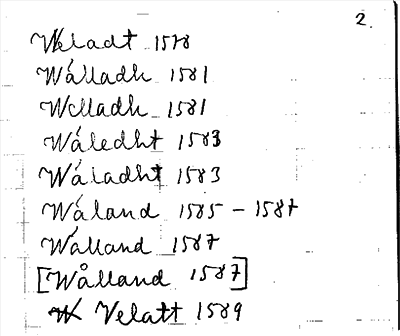 2.
Weladt 1578
Wálladh 1581
Welladh 1581
Wáledht 1583
Wáladht 1583
Wáland 1585 - 1587
Wálland 1587
[Wålland 1587]
Velatt 1589